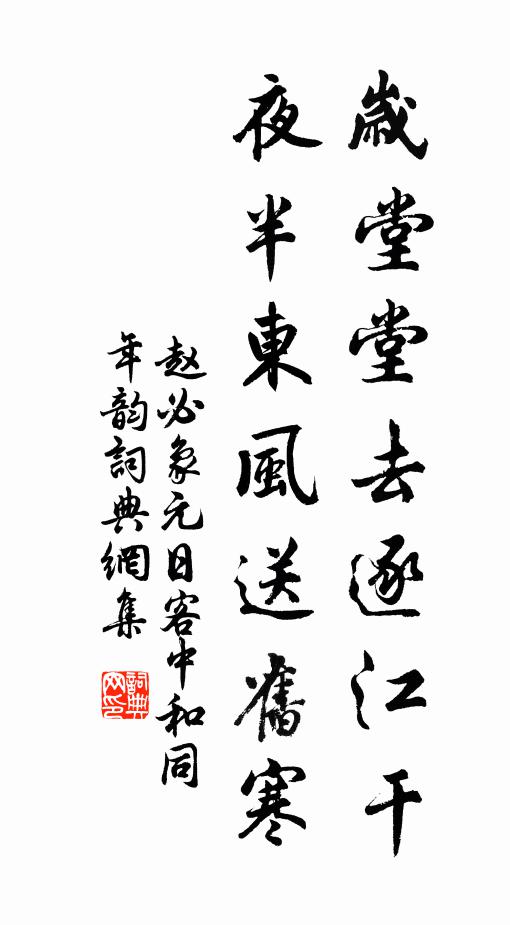 歲堂堂去逐江干
夜半東風送舊寒
赵必象元日客中和同
年韵詞典網集
詞典网印